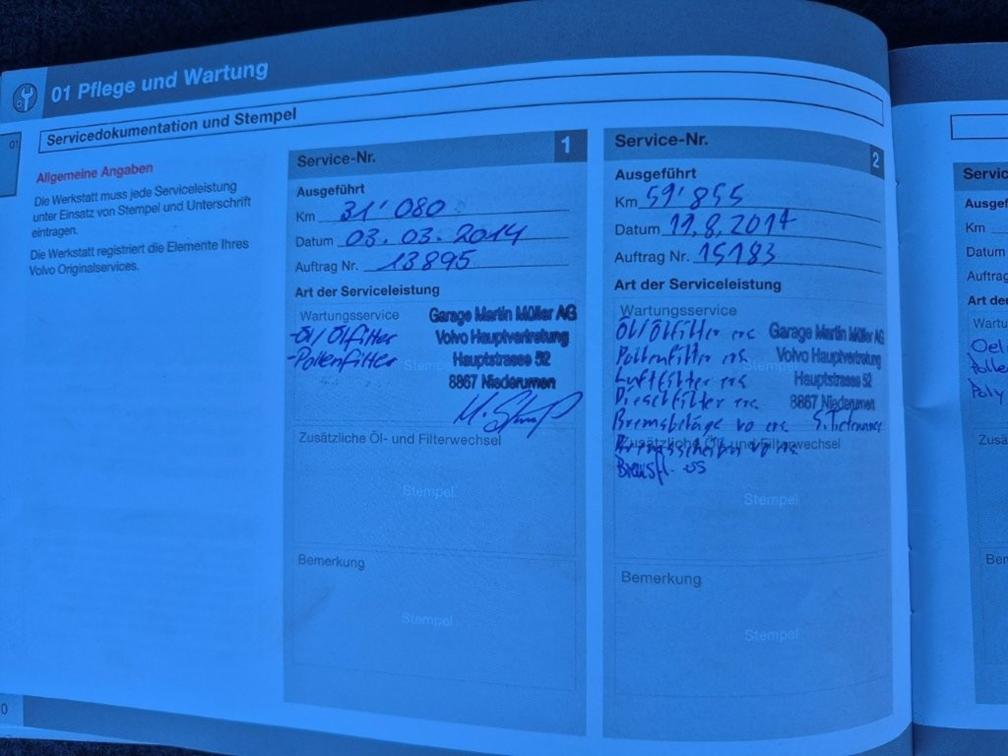 01 Pflege und Wartung
01
Servicedokumentation und Stempel
Allgemeine Angaben
Die Werkstatt muss jede Serviceleistung
unter Einsatz von Stempel und Unterschrift
eintragen.
Die Werkstatt registriert die Elemente Ihres
Volvo Originalservices.
Service-Nr. 1
Ausgeführt
Km 31'080
Datum 03.03.2014
Auftrag Nr. 13895
Art der Serviceleistung
Wartungsservice
-Öl/Ölfilter
-Pollenfilter
Garage Martin Müller AG
Volvo Hauptvertretung
Hauptstrasse 52
8867 Niederurnen
Zusätzliche Öl- und Filterwechsel
Stempel
Bemerkung
Stempel
Service-Nr. 2
Ausgeführt
Km 59'855
Datum 11.8.2017
Auftrag Nr. 15183
Art der Serviceleistung
Wartungsservice
Öl/Ölfilter ers
Pollenfilter ers.
Luftfilter ers
Dieselfilter ers.
Bremsbeläge vo ers.
Bremsscheiben vo ers
Garage Martin Müller AG
Volvo Hauptvertretung
Hauptstrasse 52
8867 Niederurnen
Zusätzliche Öl- und Filterwechsel
Stempel
Bemerkung
Stempel
Servic
Ausgef
Km
Datum
Auftrag
Art de
Wartu
Oel
Polle
Poly
Zusä
Ber
0